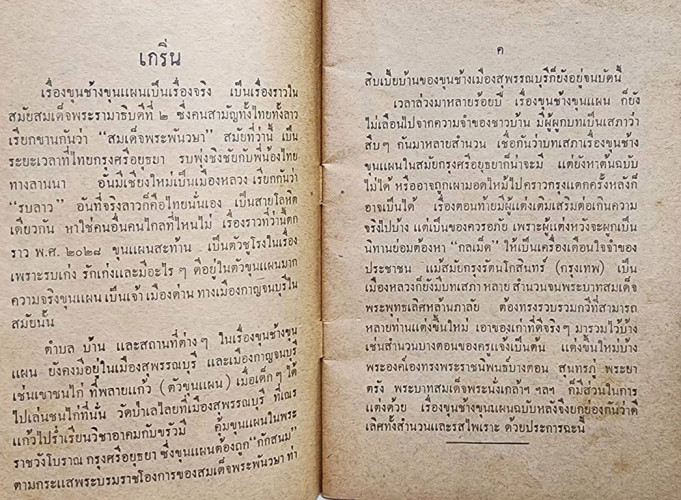 เกริ่น
เรื่องขุนช้างขุนแผนเป็นเรื่องจริง เป็นเรื่องราวใน
สมัยสมเด็จพระรามาธิบดีที่ ๒ ซึ่งคนสามัญทั้งไทยทั้งลาว
เรียกขานกันว่า “สมเด็จพระพันวษา” สมัยที่ว่านี้ เป็น
ระยะเวลาที่ไทยกรุงศรีอยุธยา รบพุ่งชิงชัยกับพี่น้องไทย
ทางลานนา อันมีเชียงใหม่เป็นเมืองหลวง เรียกกันว่า
“รบลาว” อันที่จริงลาวก็คือไทยนั่นเอง เป็นสายโลหิต
เดียวกัน หาใช่คนอื่นคนไกลที่ไหนไม่ เรื่องราวที่ว่านี้ตก
ราว พ.ศ. ๒๐๒๘ ขุนแผนสะท้าน เป็นตัวชูโรงในเรื่อง
เพราะรบเก่ง รักเก่งและมีอะไร ๆ ดีอยู่ในตัวขุนแผนมาก
ความจริงขุนแผน เป็นเจ้าเมืองด่าน ทางเมืองกาญจนบุรีใน
สมัยนั้น
ตำบล บ้าน และสถานที่ต่างๆ ในเรื่องขุนช้างขุน
แผน ยังคงมีอยู่ในเมืองสุพรรณบุรี และเมืองกาญจนบุรี
เช่นเขาชนไก่ ที่พลายแก้ว (ตัวขุนแผน) เมื่อเด็กๆ ได้
ไปเล่นชนไก่ที่นั่น วัดป่าเลไลยที่เมืองสุพรรณบุรี ที่เณร
แก้วไปร่ำเรียนวิชาอาคมกับขรัวมี คุ้มขุนแผนในพระ
ราชวังโบราณ กรุงศรีอยุธยา ซึ่งขุนแผนต้องถูก “กักสนม”
ตามกระแสพระบรมราชโองการของสมเด็จพระพันวษา ท่า
ค
สิบเบี้ยบ้านของขุนช้างเมืองสุพรรณบุรีก็ยังอยู่จนบัดนี้
เวลาล่วงมาหลายร้อยปี เรื่องขุนช้างขุนแผน ก็ยัง
ไม่เลือนไปจากความจำของชาวบ้าน มีผู้ผูกบทเป็นเสภาว่า
สืบๆ กันมาหลายสำนวน เชื่อกันว่าบทเสภาเรื่องขุนช้าง
ขุนแผนในสมัยกรุงศรีอยุธยาก็น่าจะมี แต่ยังหาต้นฉบับ
ไม่ได้ หรืออาจถูกเผามอดไหม้ไปคราวกรุงแตกครั้งหลังก็
อาจเป็นได้ เรื่องตอนท้ายมีผู้แต่งเติมเสริมต่อเกินความ
จริงไปบ้าง แต่เป็นของควรอภัย เพราะผู้แต่งหวังจะผูกเป็น
นิทานย่อมต้องหา “กลเม็ด” ให้เป็นเครื่องเตือนใจจำของ
ประชาชน แม้สมัยกรุงรัตนโกสินทร์ (กรุงเทพ) เป็น
เมืองหลวงก็ยังมีบทเสภา หลายสำนวนจนพระบาทสมเด็จ
พระพุทธเลิศหล้านภาลัย ต้องทรงรวบรวมกวีที่สามารถ
หลายท่านแต่งขึ้นใหม่ เอาของเก่าที่ดีจริงๆ มารวมไว้บ้าง
เช่นสำนวนบางตอนของครูแจ้งเป็นต้น แต่งขึ้นใหม่บ้าง
พระองค์เองทรงพระราชนิพนธ์บางตอน สุนทรภู่ พระยา
ตรัง พระบาทสมเด็จพระนั่งเกล้าฯ ฯลฯ ก็มีส่วนในการ
แต่งด้วย เรื่องขุนช้างขุนแผนฉบับหลังจึงยกย่องกันว่าดี
เลิศทั้งสำนวนและรสไพเราะ ด้วยประการฉะนี้